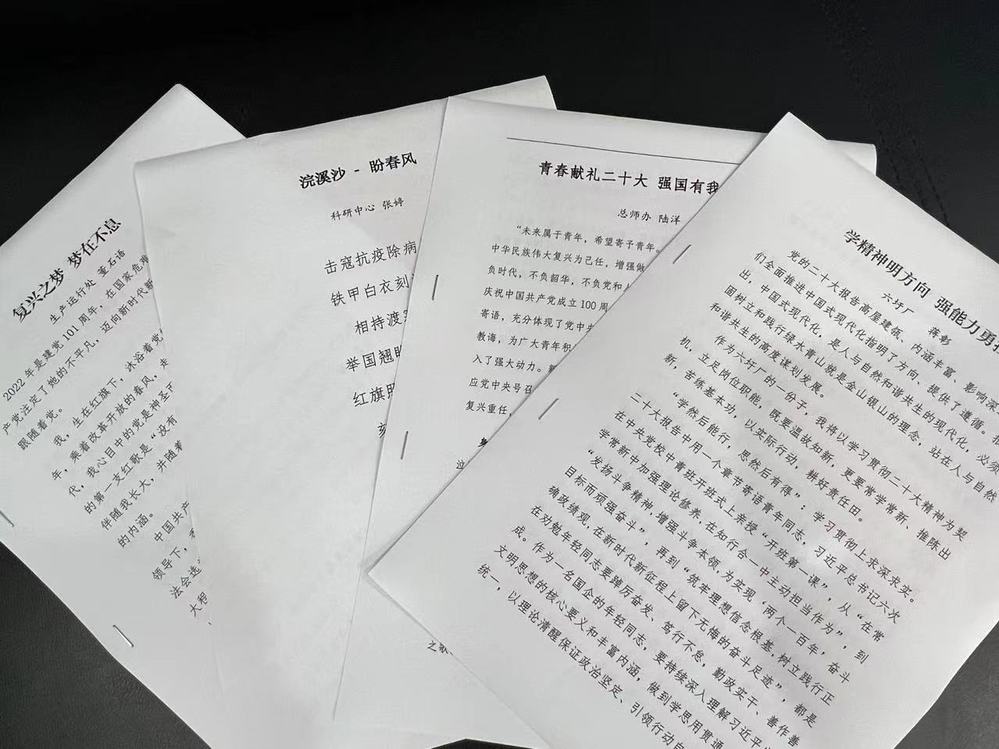 复兴之梦 梦在不息
生产运行处 董石语
2022年是建党101周年，在国家危难
产党注定了她的不平凡，迈向新时代新
跟随着党。
我，生在红旗下，沐浴着党
年，乘着改革开放的春风，走
代，我心目中的党是神圣而
的第一支红歌是“没有
伴随我长大，并随着
的内涵。
中国共产
领导下，
法会选
大程
浣溪沙 - 盼春风
科研中心 张婷
击寇抗疫除病
铁甲白衣刻
相持渡
举国翘盼
红旗
青春献礼二十大 强国有我
总师办 陆洋
“未来属于青年，希望寄予青年。
中华民族伟大复兴为己任，增强做
负时代，不负韶华，不负党和
庆祝中国共产党成立100周
寄语，充分体现了党中央
教诲，为广大青年积
入了强大动力。
应党中央号召
复兴重任，
学精神明方向 强能力勇担
六圩厂 蒋彰
党的二十大报告高屋建瓴、内涵丰富，影响深
们全面推进中国式现代化指明了方向、提供了遵循。报
出，中国式现代化，是人与自然和谐共生的现代化，必须
固树立和践行绿水青山就是金山银山的理念，站在人与自然
和谐共生的高度谋划发展。
作为六圩厂的一份子，我将以学习贯彻二十大精神为契
机，立足岗位职能，以实际行动，耕好责任田。
“学然后能行，思然后有得”：学习贯彻上求深求实。
新，苦练基本功，既要温故知新，更要常学常新、推陈出
二十大报告中用一个章节寄语青年同志，习近平总书记六次
在中央党校中青班开班式上亲授“开班第一课”，从“在常
学常新中加强理论修养、在知行合一中主动担当作为”，到
“发扬斗争精神，增强斗争本领，为实现‘两个一百年’奋斗
目标而顽强奋斗”，再到“筑牢理想信念根基，树立践行正
确政绩观，在新时代新征程上留下无悔的奋斗足迹”，都是
在劝勉年轻同志要踔厉奋发、笃行不怠，勤政实干、善作善
成。作为一名国企的年轻同志，要持续深入理解习近平
文明思想的核心要义和丰富内涵，做到学思用贯通
统一，以理论清醒保证政治坚定、引领行动自